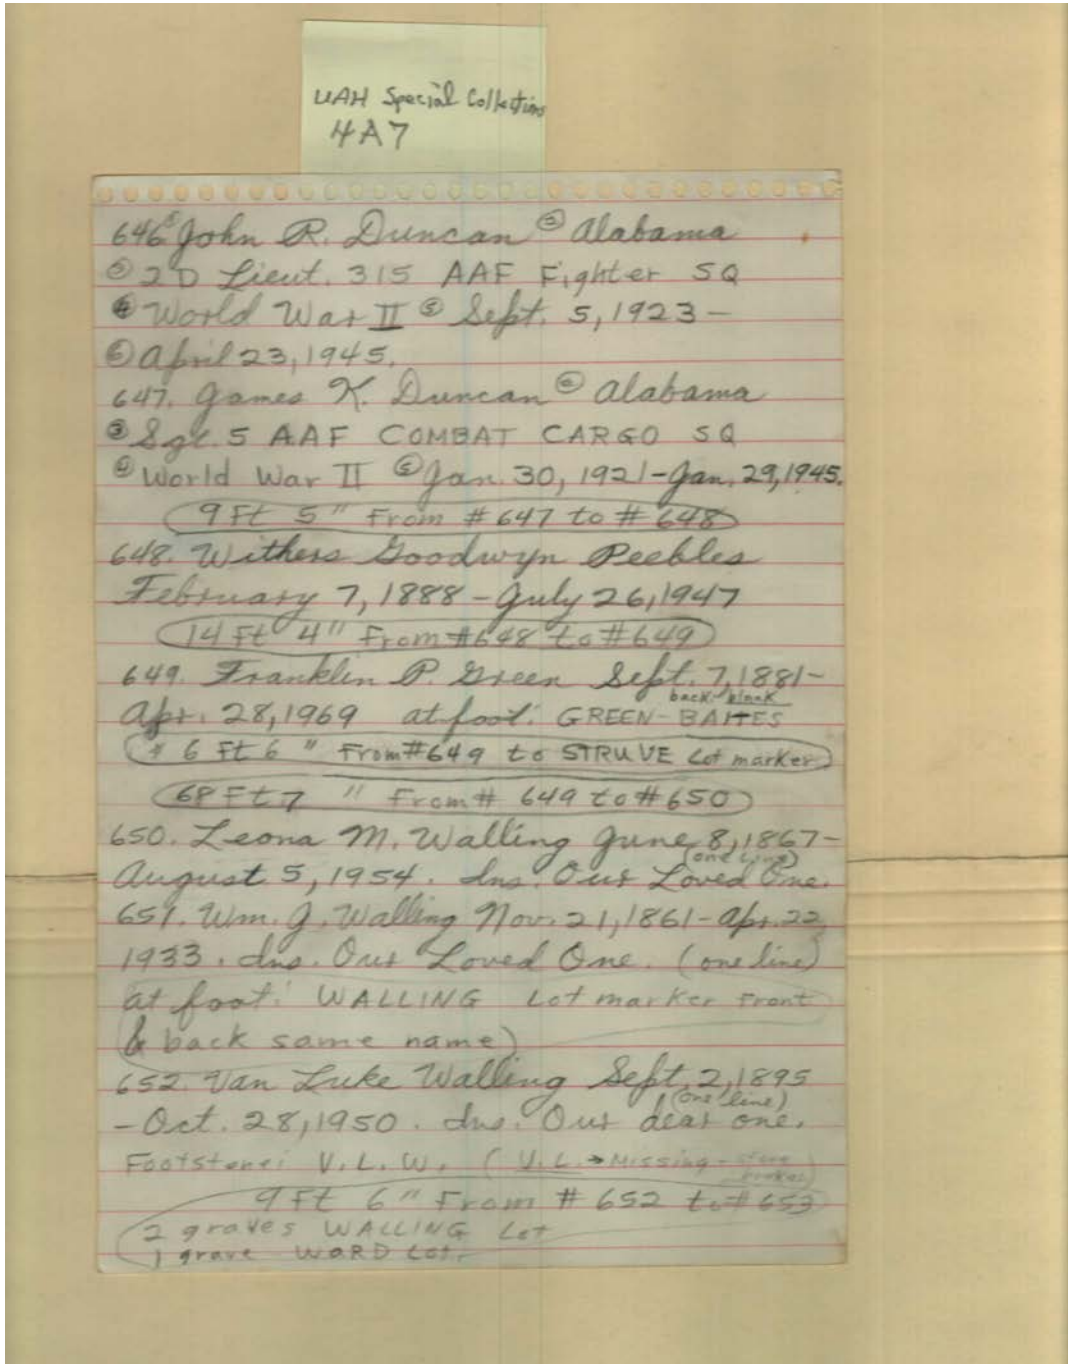 UAH Special Collections
4A7
646. ① John R. Duncan ② Alabama
③ 2D Lieut. 315 AAF Fighter SQ
④ World War II ⑤ Sept. 5, 1923 -
⑥ April 23, 1945.
647. James K. Duncan ② Alabama
③ Sgt. 5 AAF COMBAT CARGO SQ
④ World War II ⑤ Jan. 30, 1921-Jan. 29, 1945.
9 Ft 5" From #647 to #648
648. Withers Goodwyn Peebles
February 7, 1888 - July 26, 1947
14 Ft 4" From #648 to #649
649. Franklin P. Green Sept. 7, 1881-
back blank
Apr. 28, 1969 at foot: GREEN-BAITES
6 Ft 6" From #649 to STRUVE Lot marker
68 Ft 7" From # 649 to #650
650. Leona M. Walling June 8, 1867-
(one line)
August 5, 1954. Ins. Our Loved One.
651. Wm. J. Walling Nov. 21, 1861-Apr. 22
1933. Ins. Our Loved One. (one line)
at foot: WALLING Lot marker Front
& back same name)
652. Van Luke Walling Sept. 2, 1895
(one line)
-Oct. 28, 1950. Ins. Our dear one.
Footstone: V.L.W. (V.L.→Missing-stone
broken)
9 Ft 6" From # 652 to #653
2 graves WALLING Lot
1 grave WORD Lot.